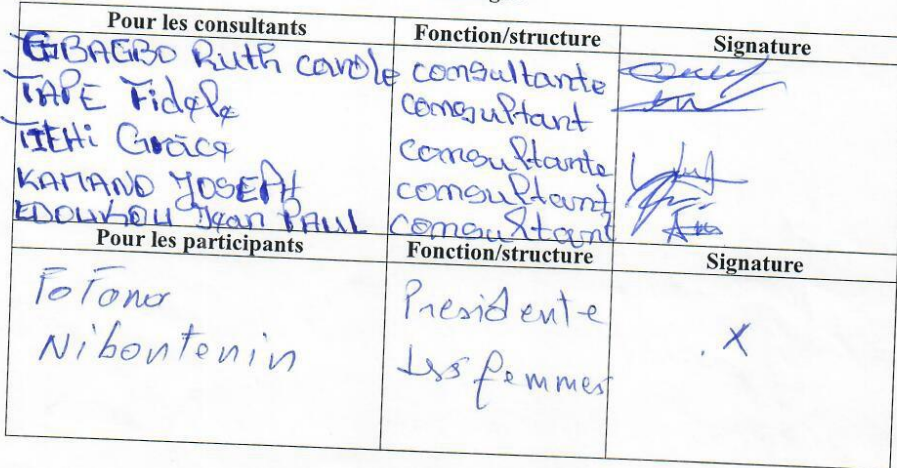 Pour les consultants Fonction/structure Signature
GBAGBO Ruth carole consultante
TAPE Fidele consultant
TIEHi Grâce consultante
KAMANO JOSEPH consultant
EDOUKOU Jean PAUL consultant
Pour les participants Fonction/structure Signature
Fofona Présidente
Nibontenin des femmes
. X